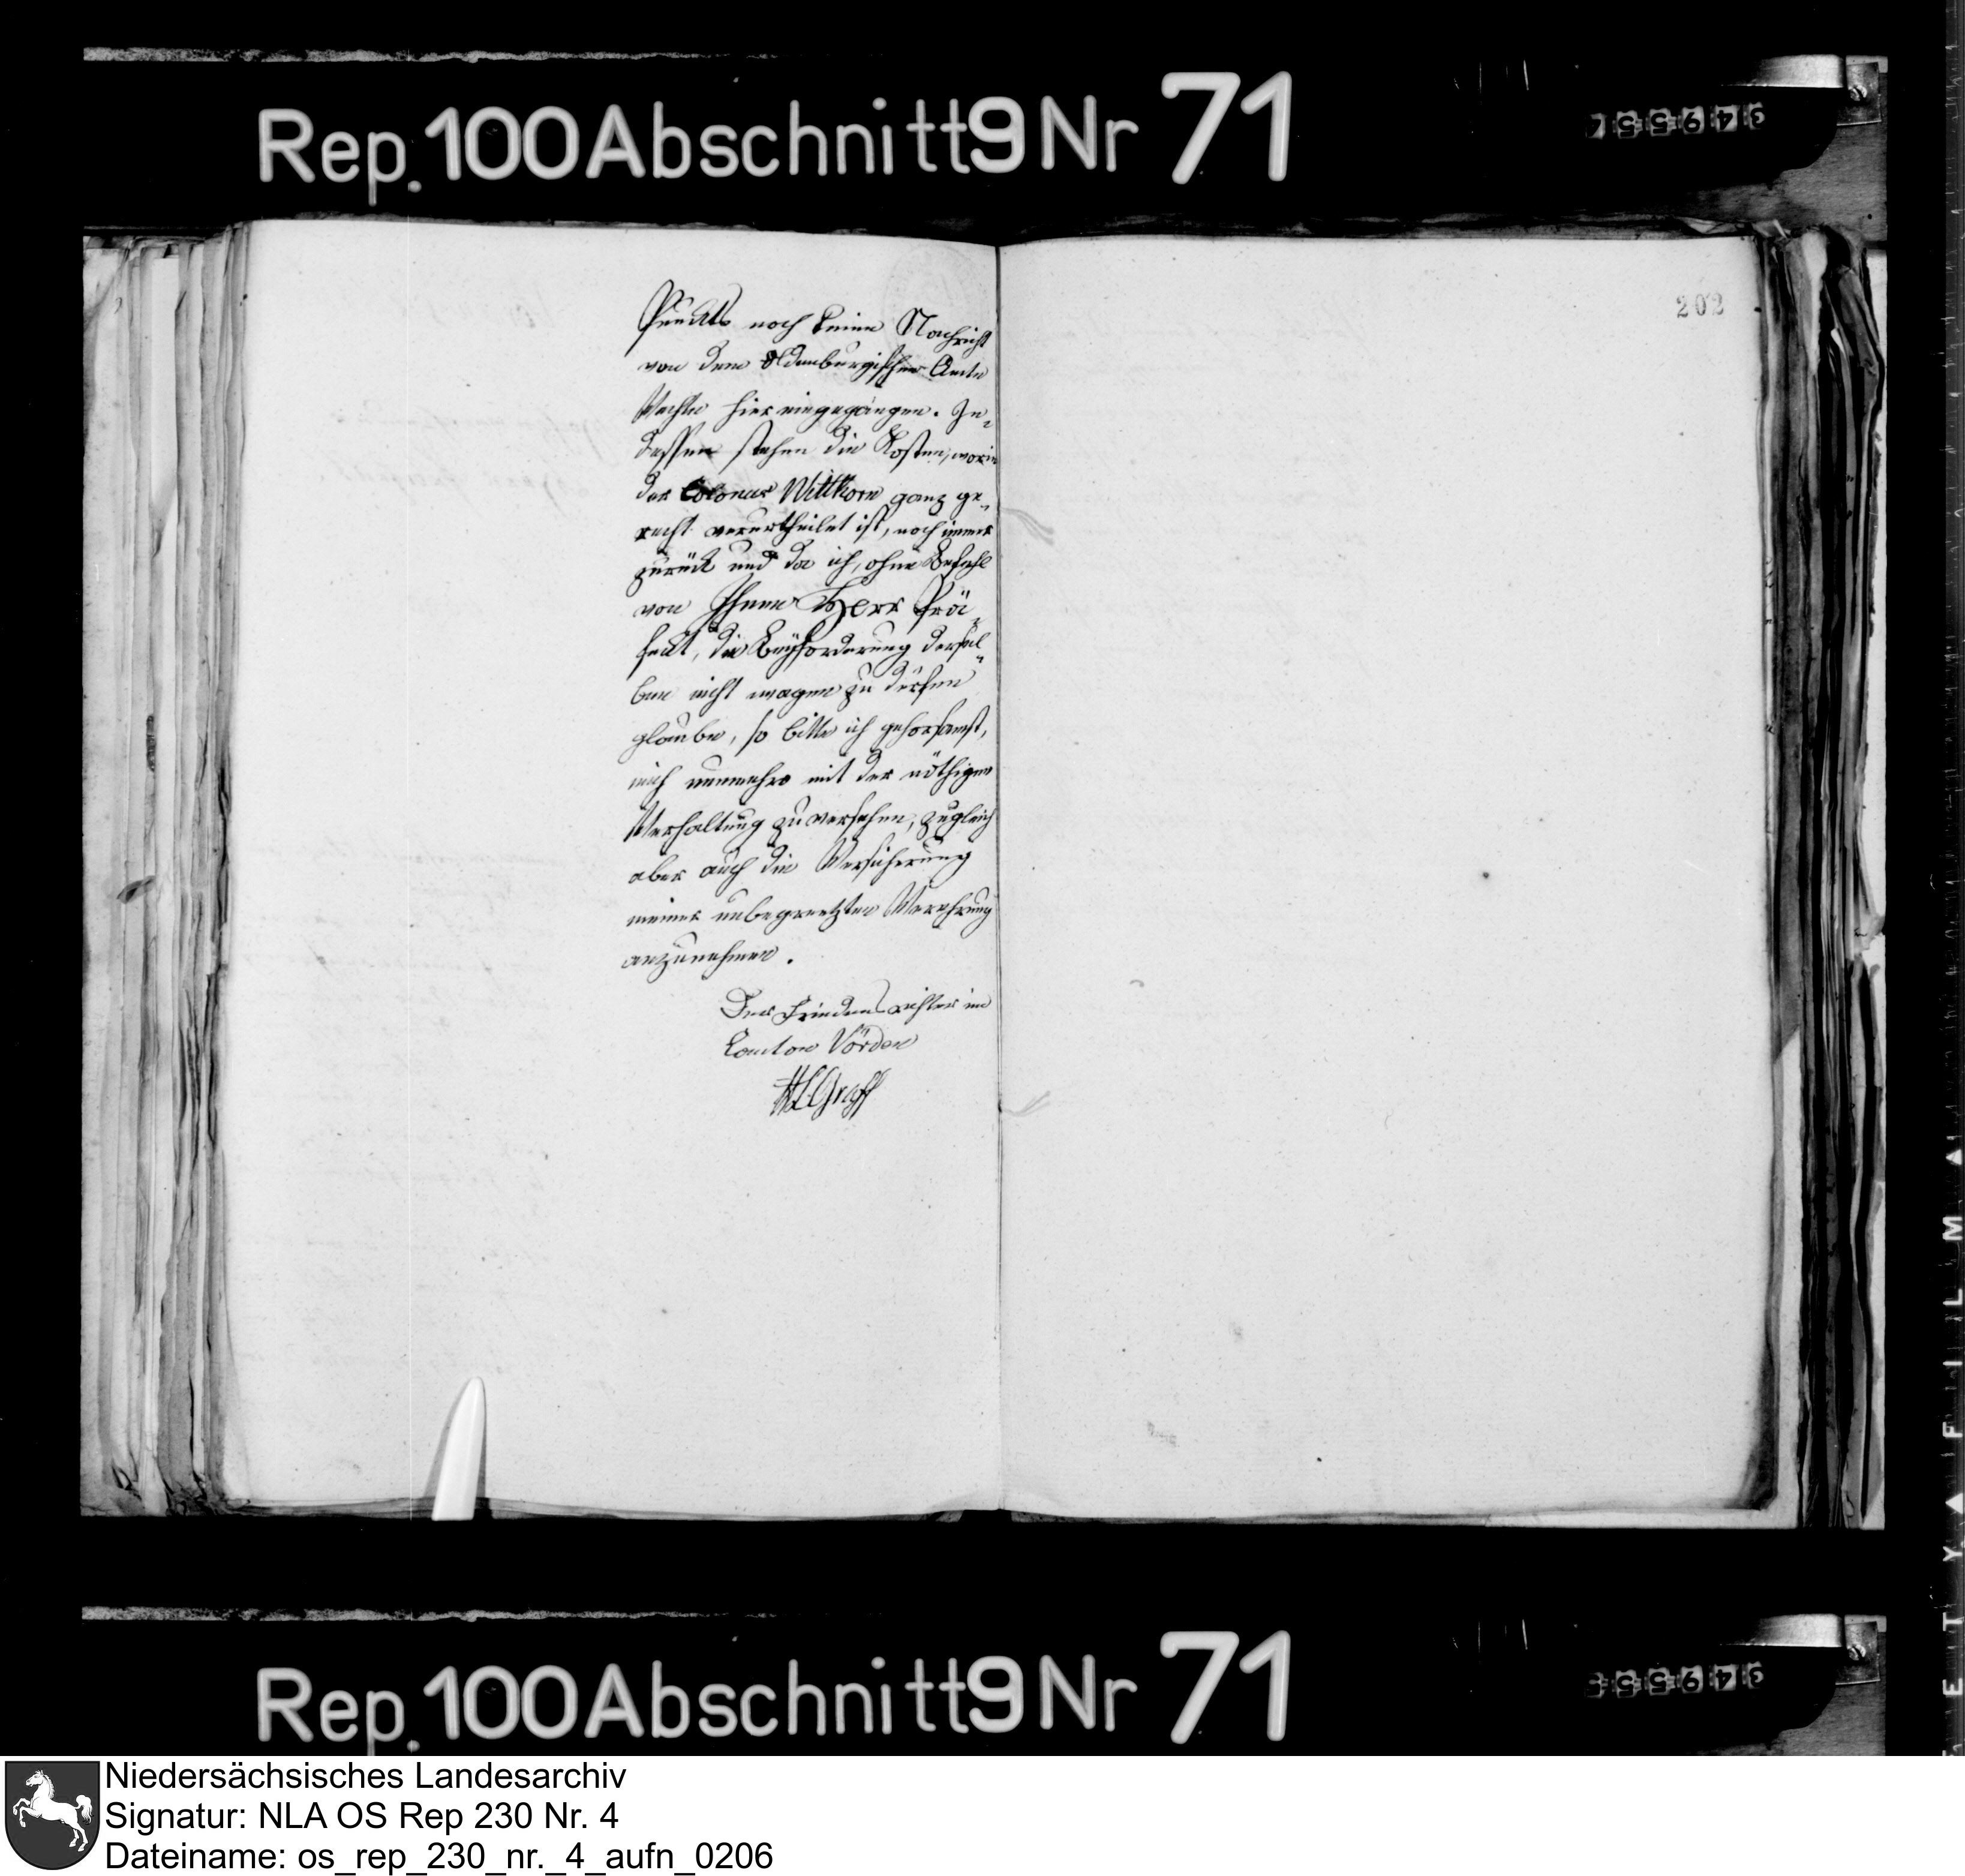 Rep. 100 Abschnitt 9 Nr 71
34955
202
Puncts noch keine Nachricht
von dem Oldenburgischen Amte
Vechte hier eingegangen. In-
dessen stehen die Kosten, worin
der Colonus Wittkorn ganz ge-
recht verurtheilet ist, noch immer
zurück und da ich, ohne Befehl
von Ihnen Herr Prä-
fect, die Beyforderung dersel-
ben nicht wagen zu dürfen
glaube, so bitte ich gehorsamst,
mich nunmehro mit der nöthigen
Verhaltung zu versehen, zugleich
aber auch die Versicherung
meiner unbegrentzten Verehrung
anzunehmen.
Der Friedensrichter im
Canton Vörden
Graff
Rep. 100 Abschnitt 9 Nr 71
34955
Niedersächsisches Landesarchiv
Signatur: NLA OS Rep 230 Nr. 4
Dateiname: os_rep_230_nr._4_aufn_0206